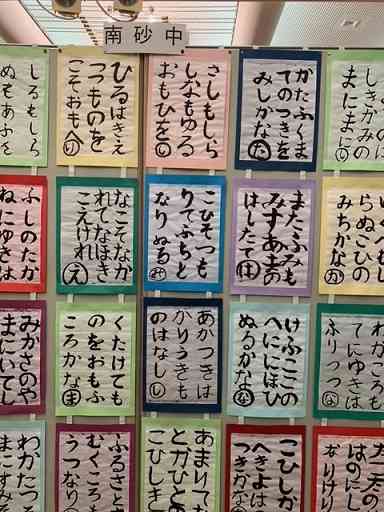 南砂中
しきかみの
かたふくま
てのつきを
みしかな
さしもしら
しなもゆる
おもひを
ひるはきえ
つつものを
こそおもへ
しろもしら
ぬそあふを
らぬこひの
みちかな
またふみも
みすあまの
はしたて
こひそつも
りてふちと
なりぬる
なこそなか
れてなほき
こえけれ え
ふしのたか
ねにゆきは
てにゆきは
ふりつつ
けふここの
へににほひ
ぬるかな な
あかつきは
かりうきも
のはなし し
くたけても
のをおもふ
ころかな ま
みかさのや
まにいてし
こひしか
へきよは
つきかな
あまりてな
とかひと
こひしき
ふるさと
むくころも
うつなり
わかたつ
まにすみ